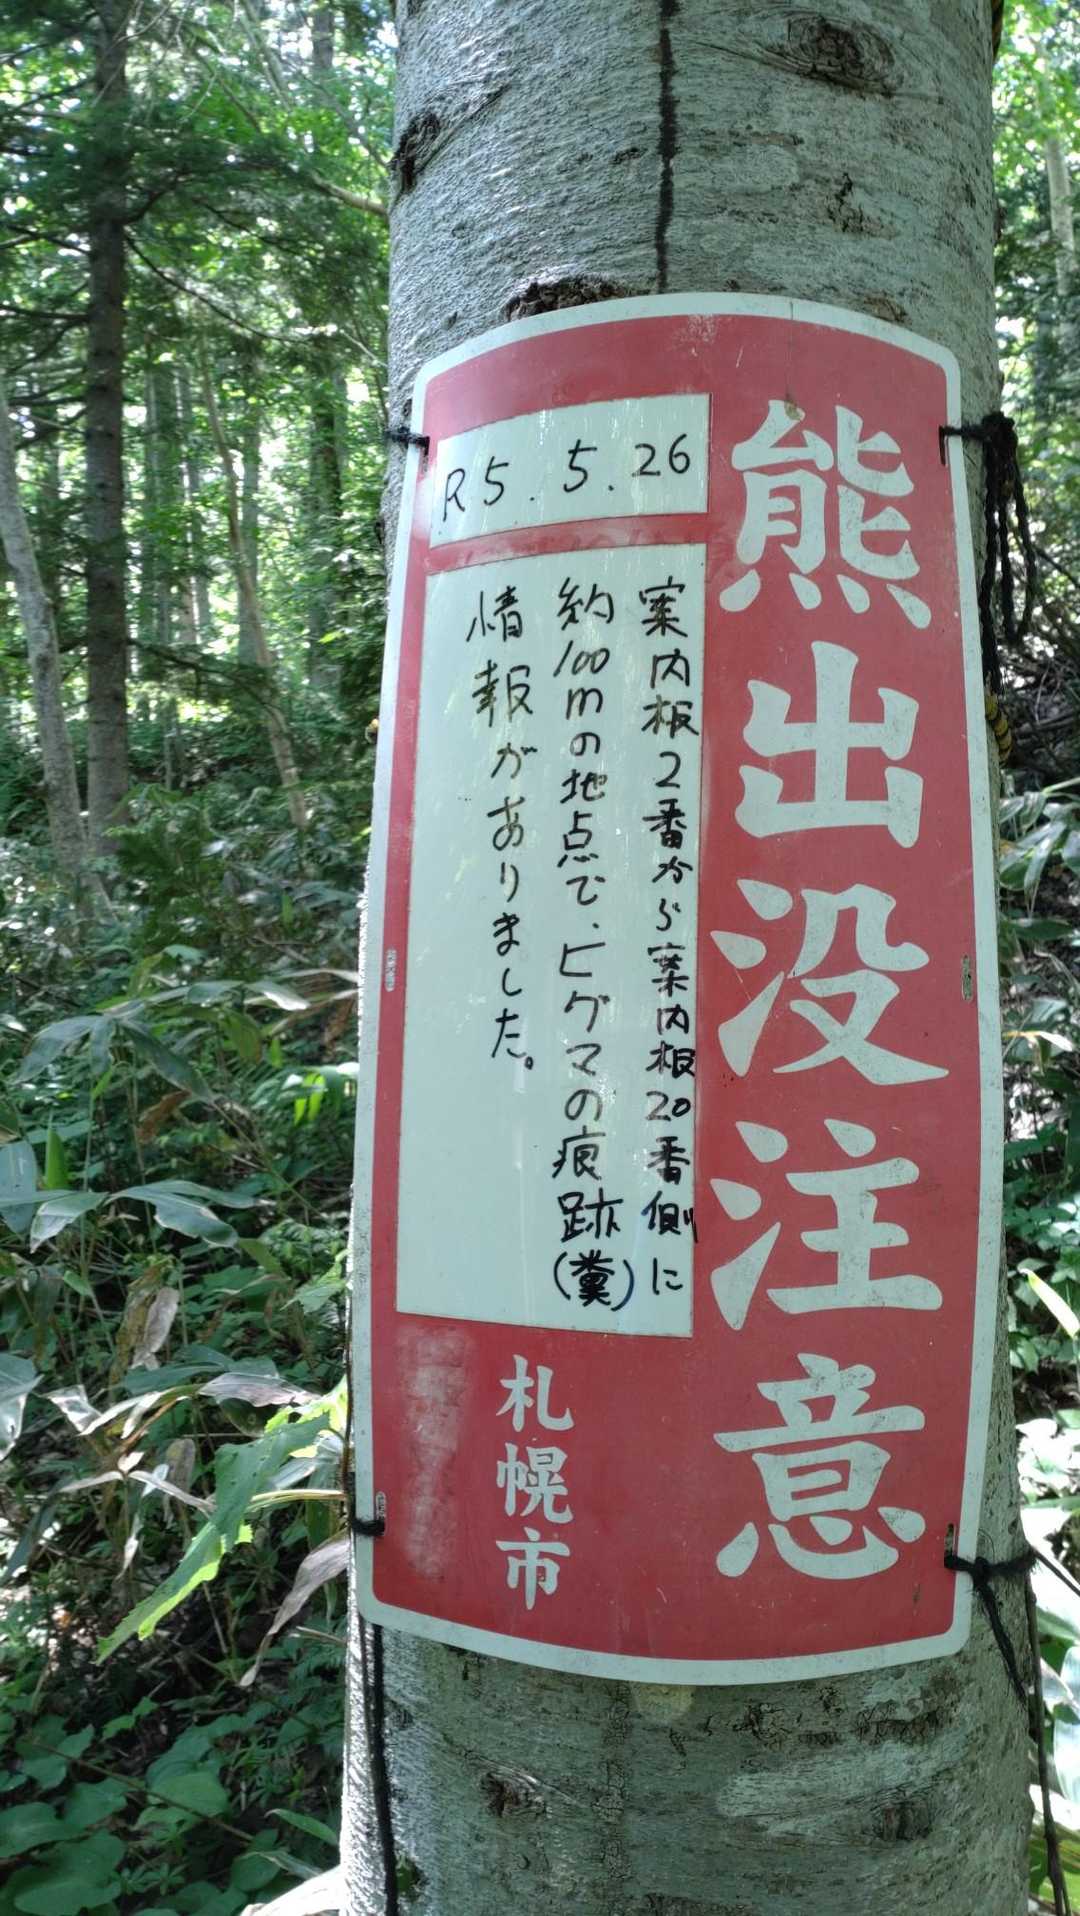 熊出没注意
R5.5.26
案内板2番から案内板20番側に
約100mの地点で、ヒグマの痕跡(糞)
情報がありました。
札幌市